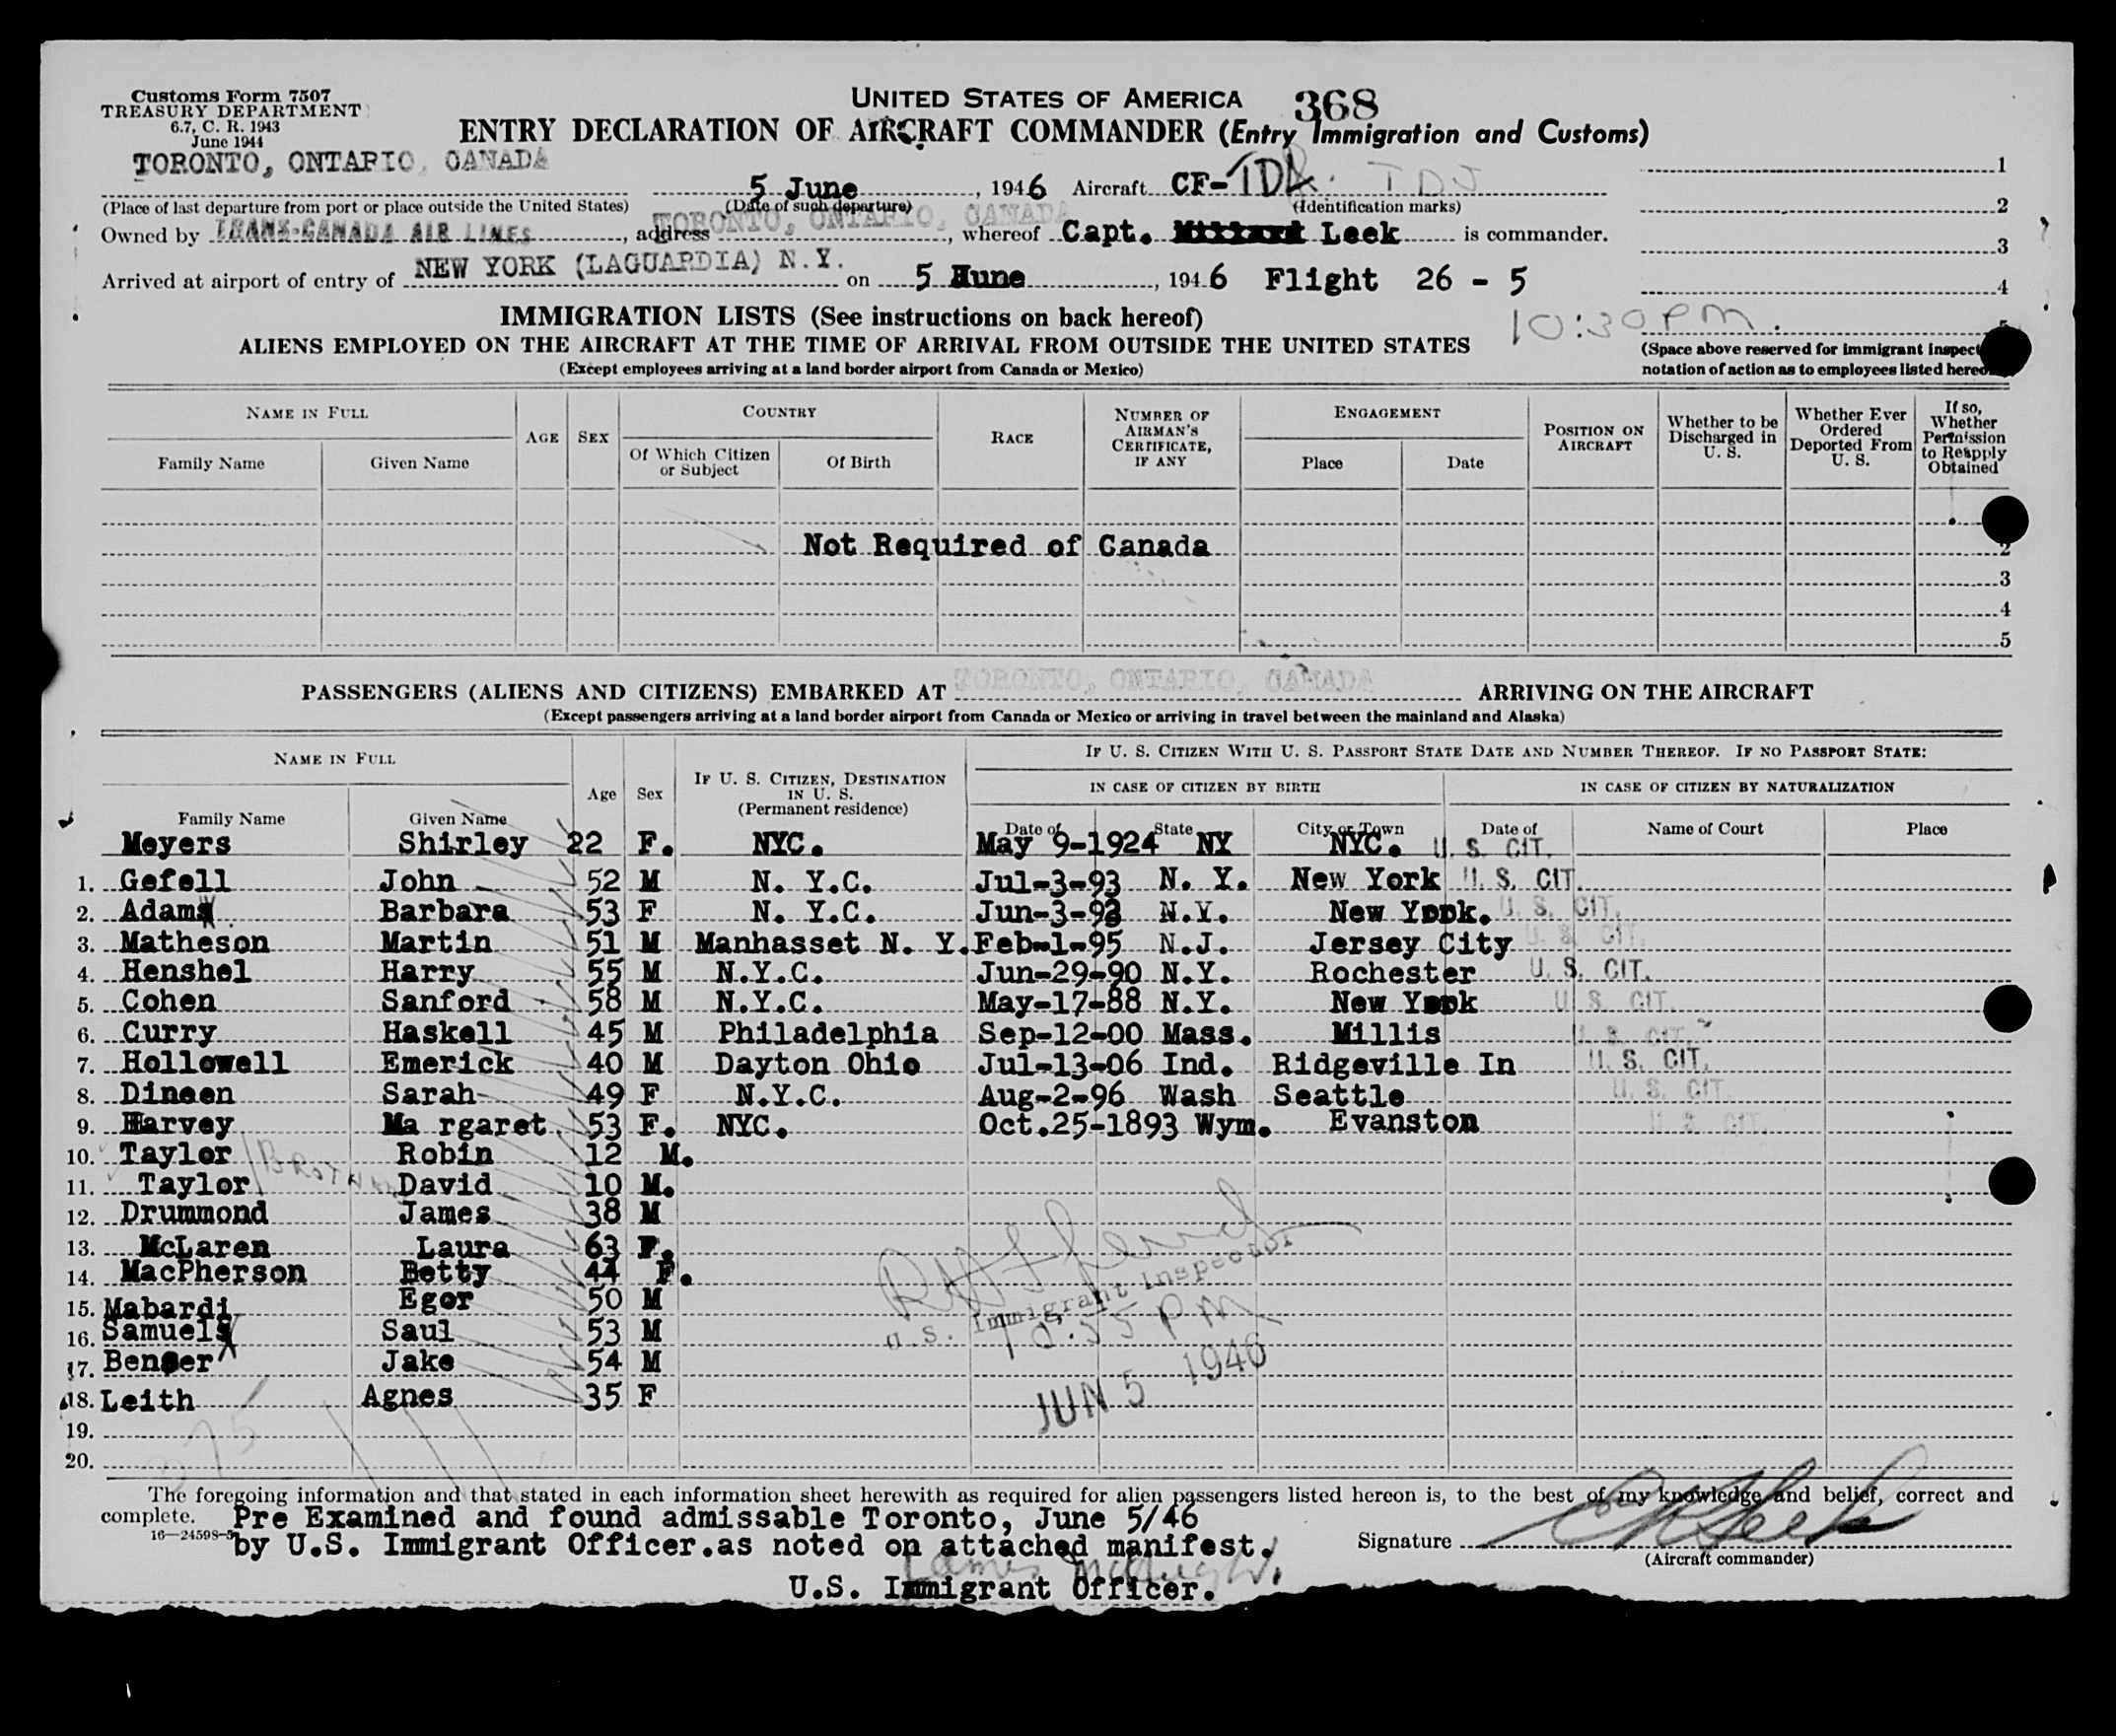 Customs Form 7507
TREASURY DEPARTMENT
6.7, C. R. 1943
June 1944
UNITED STATES OF AMERICA 368
ENTRY DECLARATION OF AIRCRAFT COMMANDER (Entry Immigration and Customs)
TORONTO, ONTARIO, CANADA 5 June, 1946 Aircraft CF- TDJ 1
(Place of last departure from port or place outside the United States) (Date of such departure) (Identification marks) 2
Owned by TRANS-CANADA AIR LINES, address TORONTO, ONTARIO, CANADA, whereof Capt. Leek is commander. 3
Arrived at airport of entry of NEW YORK (LAGUARDIA) N.Y. on 5 June, 1946 Flight 26 - 5 4
IMMIGRATION LISTS (See instructions on back hereof) 10:30 PM.
ALIENS EMPLOYED ON THE AIRCRAFT AT THE TIME OF ARRIVAL FROM OUTSIDE THE UNITED STATES
(Except employees arriving at a land border airport from Canada or Mexico)
(Space above reserved for immigrant inspect
notation of action as to employees listed hereo
NAME IN FULL AGE SEX COUNTRY RACE NUMBER OF AIRMAN'S CERTIFICATE, IF ANY ENGAGEMENT POSITION ON AIRCRAFT Whether to be Discharged in U. S. Whether Ever Ordered Deported From U. S. If so, Whether Permission to Reapply Obtained
Family Name Given Name Of Which Citizen or Subject Of Birth Place Date
Not Required of Canada 2
3
4
5
PASSENGERS (ALIENS AND CITIZENS) EMBARKED AT TORONTO, ONTARIO, CANADA ARRIVING ON THE AIRCRAFT
(Except passengers arriving at a land border airport from Canada or Mexico or arriving in travel between the mainland and Alaska)
NAME IN FULL Age Sex IF U. S. CITIZEN, DESTINATION IN U. S. (Permanent residence) IF U. S. CITIZEN WITH U. S. PASSPORT STATE DATE AND NUMBER THEREOF. IF NO PASSPORT STATE:
IN CASE OF CITIZEN BY BIRTH IN CASE OF CITIZEN BY NATURALIZATION
Family Name Given Name Date of State City or Town Date of Name of Court Place
Meyers Shirley 22 F. NYC. May 9-1924 NY NYC. U. S. CIT.
1. Gefell John 52 M N. Y.C. Jul-3-93 N. Y. New York U. S. CIT.
2. Adams Barbara 53 F N. Y.C. Jun-3-93 N.Y. New York. U. S. CIT.
3. Matheson Martin 51 M Manhasset N. Y. Feb-1-95 N.J. Jersey City U. S. CIT.
4. Henshel Harry 55 M N.Y.C. Jun-29-90 N.Y. Rochester U. S. CIT.
5. Cohen Sanford 58 M N.Y.C. May-17-88 N.Y. New York U. S. CIT.
6. Curry Haskell 45 M Philadelphia Sep-12-00 Mass. Millis U. S. CIT.
7. Hollowell Emerick 40 M Dayton Ohio Jul-13-06 Ind. Ridgeville In U. S. CIT.
8. Dineen Sarah 49 F N.Y.C. Aug-2-96 Wash Seattle U. S. CIT.
9. Harvey Ma rgaret 53 F. NYC. Oct.25-1893 Wym. Evanston U. S. CIT.
10. Taylor Robin 12 M.
11. Taylor David 10 M.
12. Drummond James 38 M
13. McLaren Laura 63 F.
14. MacPherson Betty 44 F.
15. Mabardi Egor 50 M
16. Samuels Saul 53 M
17. Benger Jake 54 M
18. Leith Agnes 35 F
19.
20.
U.S. Immigrant Inspector
10:55 PM
JUN 5 1946
The foregoing information and that stated in each information sheet herewith as required for alien passengers listed hereon is, to the best of my knowledge and belief, correct and
complete. Pre Examined and found admissable Toronto, June 5/46
16—24598-3 by U.S. Immigrant Officer.as noted on attached manifest. Signature
(Aircraft commander)
U.S. Immigrant Officer.